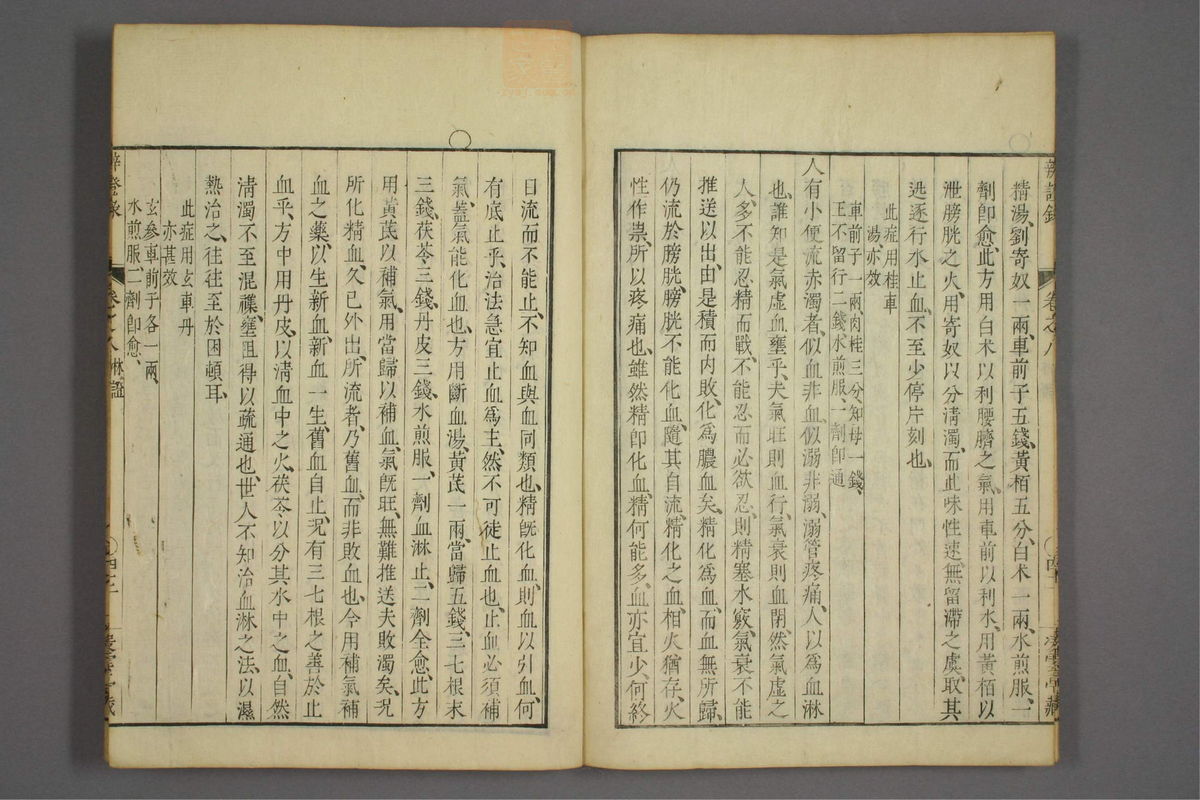 精湯劉寄奴一兩、車前子五錢、黃栢五分、白术一兩、水煎服、一
劑卽愈、此方用白术以利腰臍之氣、用車前以利水、用黃栢以
泄膀胱之火、用寄奴以分清濁、而此味性速、無留滯之虞、取其
迅逐行水止血、不至少停片刻也、
此症用桂車
湯亦效
車前子一兩肉桂三分、知母一錢、
王不留行二錢水煎服、一劑卽通
人有小便流赤濁者、似血非血、似溺非溺、溺管疼痛、人以爲血淋
也、誰知是氣虛血壅乎、夫氣旺則血行、氣衰則血閉、然氣虛之
人、多不能忍精而戰、不能忍而必欲忍、則精塞水竅、氣衰不能
推送以出、由是積而內敗、化爲膿血矣、精化爲血、而血無所歸、
仍流於膀胱、膀胱不能化血、隨其自流、精化之血、相火猶存、火
性作祟、所以疼痛也、雖然精卽化血、精何能多、血亦宜少、何終
日流而不能止、不知血與血同類也、精旣化血、則血以引血、何
有底止乎、治法急宜止血爲主、然不可徒止血也、止血必須補
氣、蓋氣能化血也、方用斷血湯、黃芪一兩、當歸五錢、三七根末
三錢、茯苓三錢、丹皮三錢、水煎服、一劑血淋止、二劑全愈、此方
用黃芪以補氣、用當歸以補血、氣旣旺、無難推送夫敗濁矣、况
所化精血、久已外出、所流者、乃舊血、而非敗血也、今用補氣補
血之藥、以生新血、新血一生、舊血自止、况有三七根之善於止
血乎、方中用丹皮、以清血中之火、茯苓以分其水中之血、自然
清濁不至混襍、壅阻得以疏通也、世人不知治血淋之法、以濕
熱治之、往往至於困頓耳、
此症用玄車丹
亦甚效
玄參車前子各一兩、
水煎服二劑卽愈、
辨證錄
卷之八
淋證